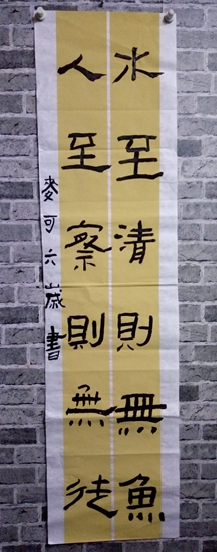 水至清則無魚
人至察則無徒
麥可六歲書